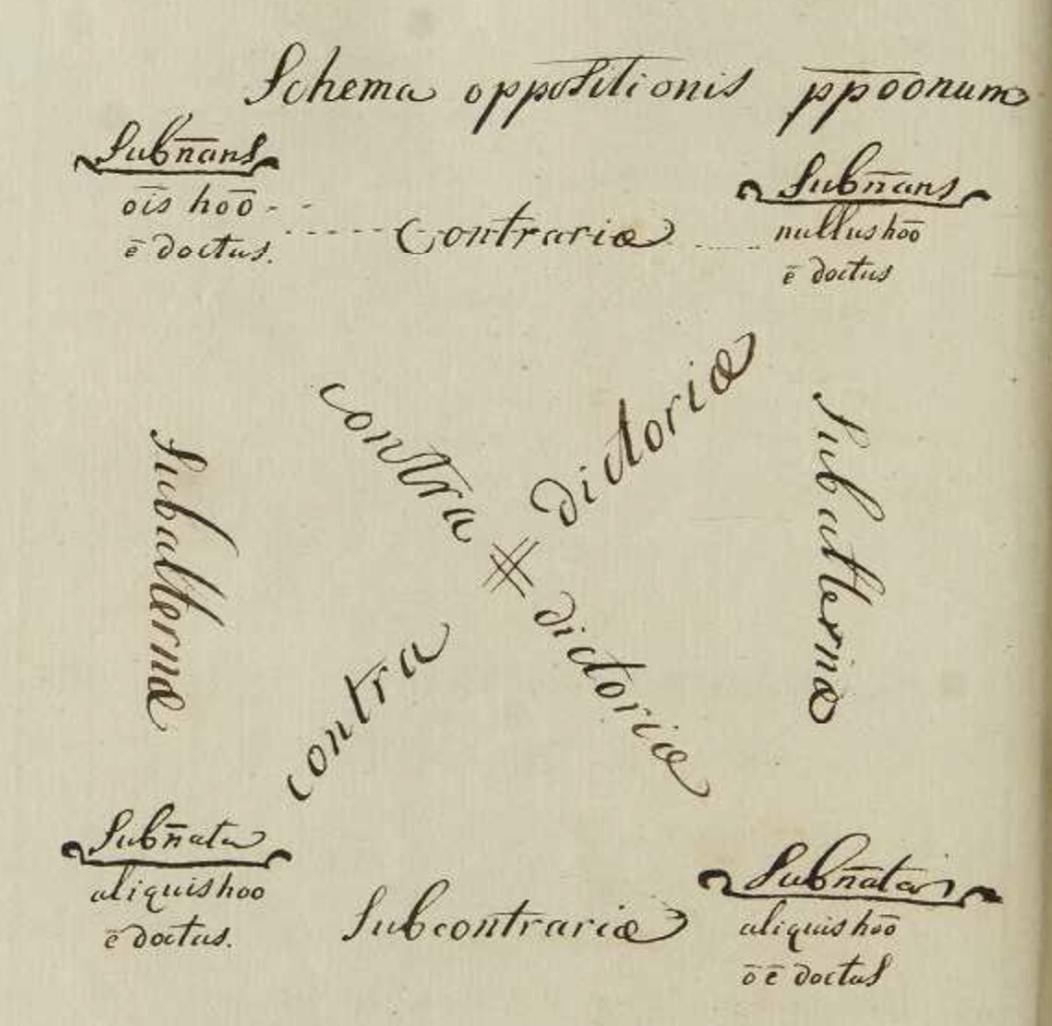 Schema oppositionis ppōōnum
Subn̄ans
ōīs hoō
ē doctus.
Contrariæ
Subn̄ans
nullus hoō
ē doctus
contra dictoriæ
contra dictoriæ
Subalternæ
Subalternæ
Subn̄ata
aliquis hoo
ē doctus.
Subcontrariæ
Subn̄ata
aliquis hoō
ō ē doctus